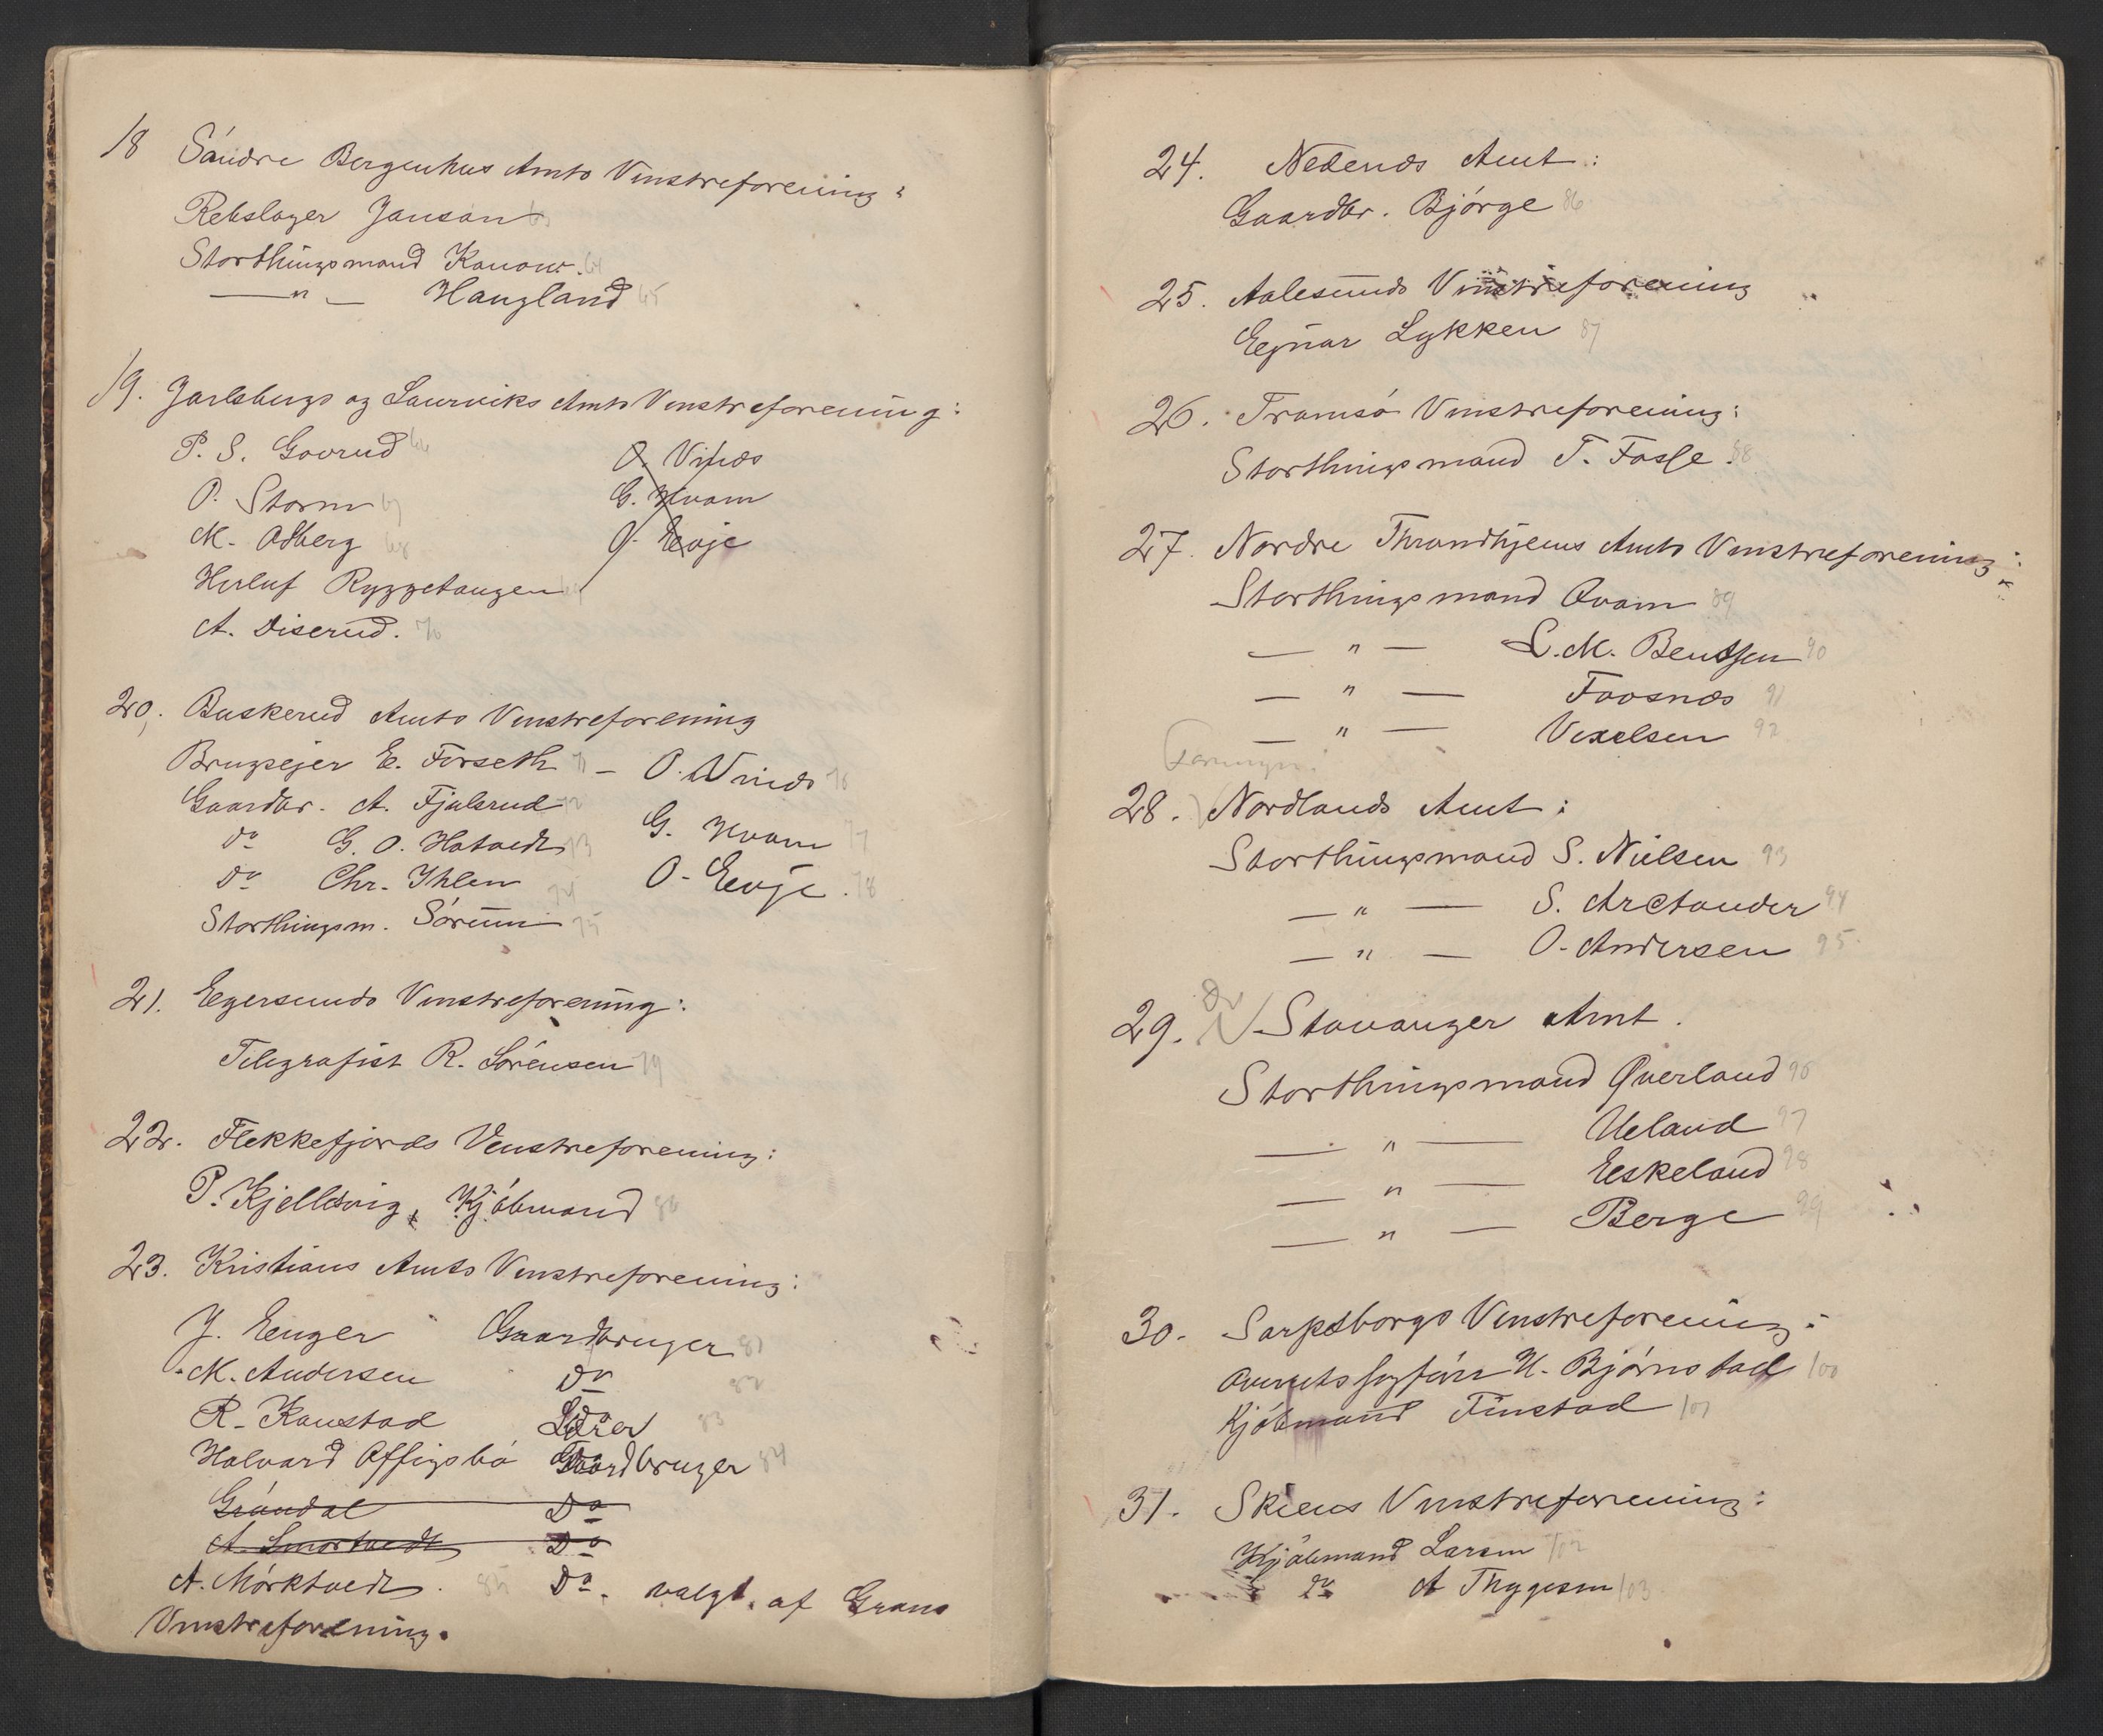 18 Söndre Bergenhus Amts Venstreforening:
Rebslager Janson 63
Storthingsmand Konow. 64
—"— Haugland 65
19. Jarlsbergs og Laurviks Amts Venstreforening:
P. S. Govrud 66
O. Storm 67
M. Odberg 68
Herluf Ryggetangen 69
A. Diserud. 70
O. Vinæs
G. Hvam
O. Eevje
20. Buskerud Amts Venstreforening
Brugsejer E. Forseth 71 — O. Vinæs 76
Gaardbr. A. Fjalsrud 72 G. Hvam 77
do G. O. Hatvedt 73 O. Eevje. 78
do Chr. Ihlen 74
Storthingsm. Sörum 75
21. Egersunds Venstreforening:
Telegrafist R. Sörensen 79
22. Flekkefjords Venstreforening:
P. Kjelldvig, Kjöbmand 80
23. Kristians Amts Venstreforening:
J. Enger Gaardbruger 81
M. Andersen do 82
R. Kanstad Lærer 83
Halvard Offigsbö Gaardbruger 84
Gröndal Do
A. Smortvedt Do
A. Mörktvedt. 85 Do. valgt af Grans
Venstreforening.
24. Nedenæs Amt:
Gaardbr. Bjorge 86
25. Aalesunds Venstreforening
Egnar Lykken 87
26. Tromsö Venstreforening:
Storthingsmand T. Fosse. 88
27. Nordre Throndhjems Amts Venstreforening:
Storthingsmand Qvam 89
—"— L. M. Bentsen 90
—"— Foosnæs 91
—"— Vexelsen 92
28. Nordlands Amt:
Storthingsmand S. Nielsen 93
—"— S. Arctander 94
—"— O. Andersen 95
29. Do Stavanger Amt.
Storthingsmand Qverland 96
—"— Ueland 97
—"— Eskeland 98
—"— Berge 99
30. Sarpsborgs Venstreforening:
Overretssagförer H. Björnstad 100
Kjöbmand Finstad 101
31. Skiens Venstreforening:
Kjöbmand Larsen 102
do A Thygesen 103